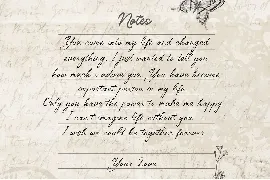 Notes
You came into my life and changed
everything. I just wanted to tell you
how much I adore you. You have become
important person in my life.
Only you have the power to make me happy
I can't imagine life without you
I wish we could be together forever
Your Love